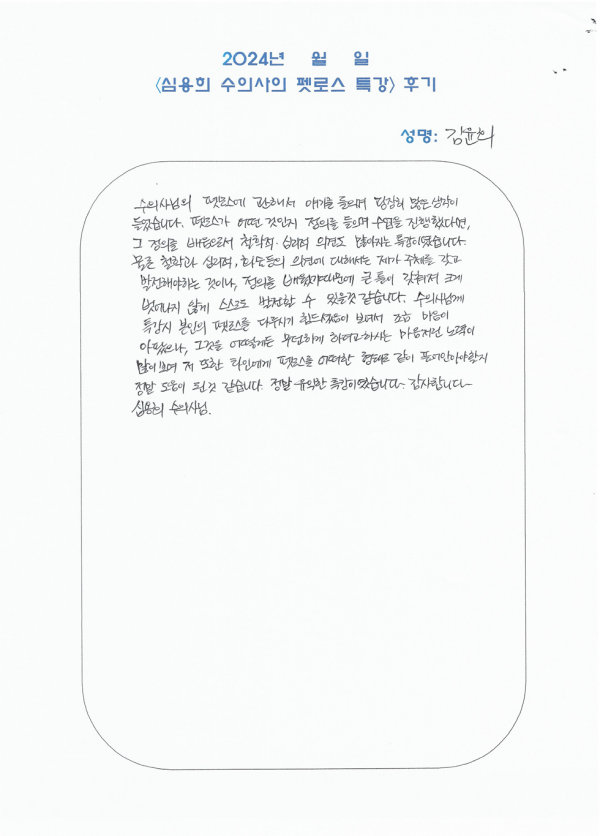 2024년 월 일
<심용희 수의사의 펫로스 특강> 후기
성명: 김윤희
수의사님의 펫로스에 관해서 얘기를 들으며 굉장히 많은 생각이
들었습니다. 펫로스가 어떤 것인지 정의를 들으며 수업을 진행했다면,
그 정의를 배움으로서 철학적·심리적 의견도 많아지는 특강이였습니다.
물론 철학과 심리적, 화소등의 의견에 대해서는 제가 주체를 갖고
발전해야하는 것이나, 정의를 배웠기때문에 큰 틀이 갖춰져 크게
벗어나지 않게 스스로 발전할 수 있을것 같습니다. 수의사님께
특강시 본인의 펫로스를 다루시기 힘드셨음이 보여서 조금 마음이
아팠으나, 그것을 어떻게든 무던하게 하려고하시는 마음저런 노력이
많이 보여 저 또한 타인에게 펫로스를 어떠한 형태로 같이 풀어안아야할지
정말 도움이 된것 같습니다. 정말 유익한 특강이였습니다. 감사합니다
심용희 수의사님.